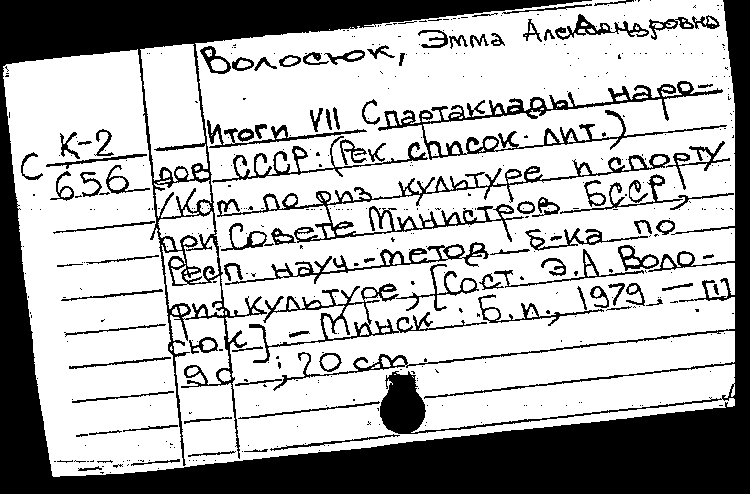 Волосюк, Эмма Александровна
Итоги VII Спартакиады наро-
дов СССР: (Рек. список лит.)
/Ком. по физ культуре и спорту
при Совете Министров БССР,
Респ. науч.-метод. б-ка по
физ. культуре; [Сост. Э.А. Воло-
сюк] – Минск : Б.и., 1979. –
9 с. ; 20 cm.
С К-2
656